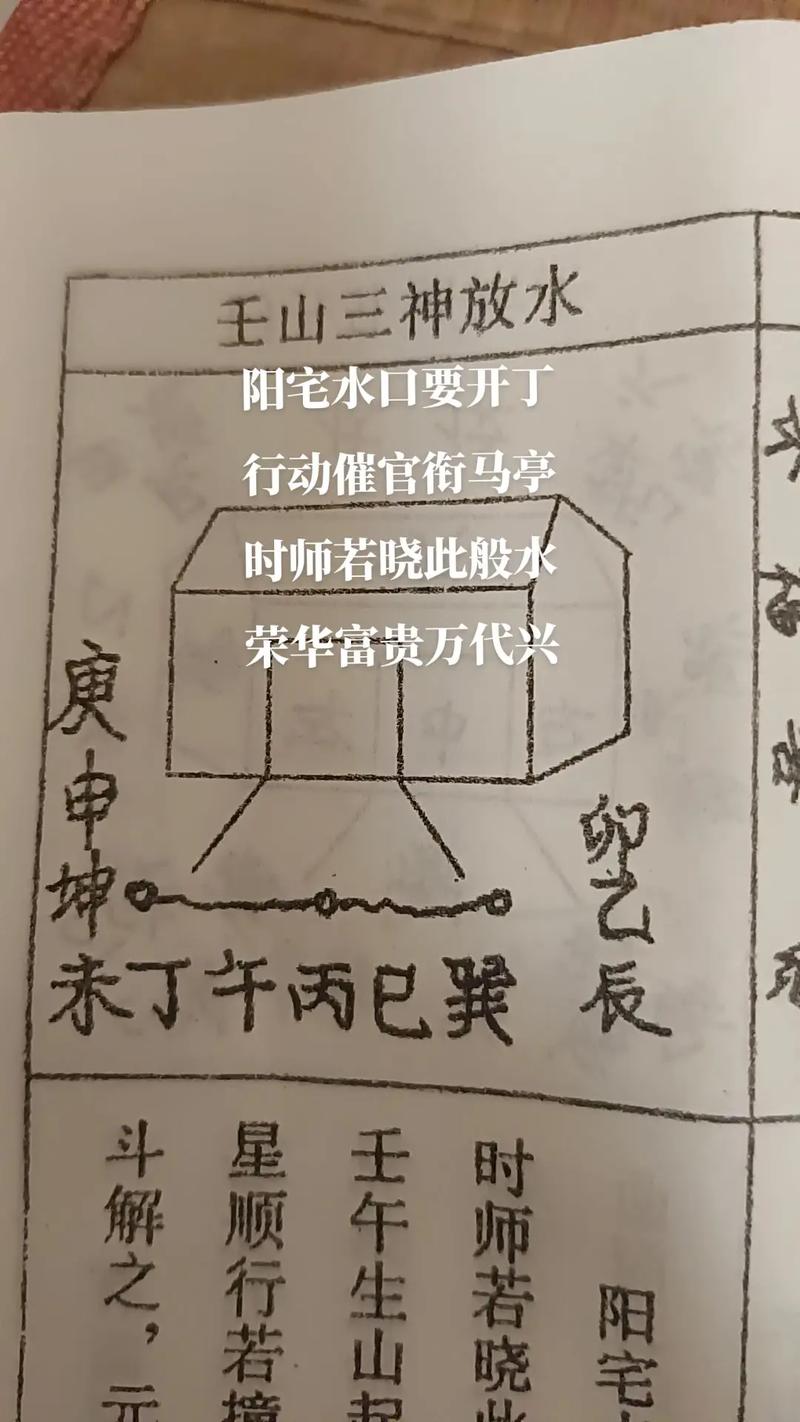 壬山三神放水
阳宅水口要开丁
行动催官衔马亭
时师若晓此般水
荣华富贵万代兴
庚
申
坤
卯
乙
辰
未丁午丙巳巽
阳宅
时师若晓此
壬午生山起
星顺行若撞
斗解之，元